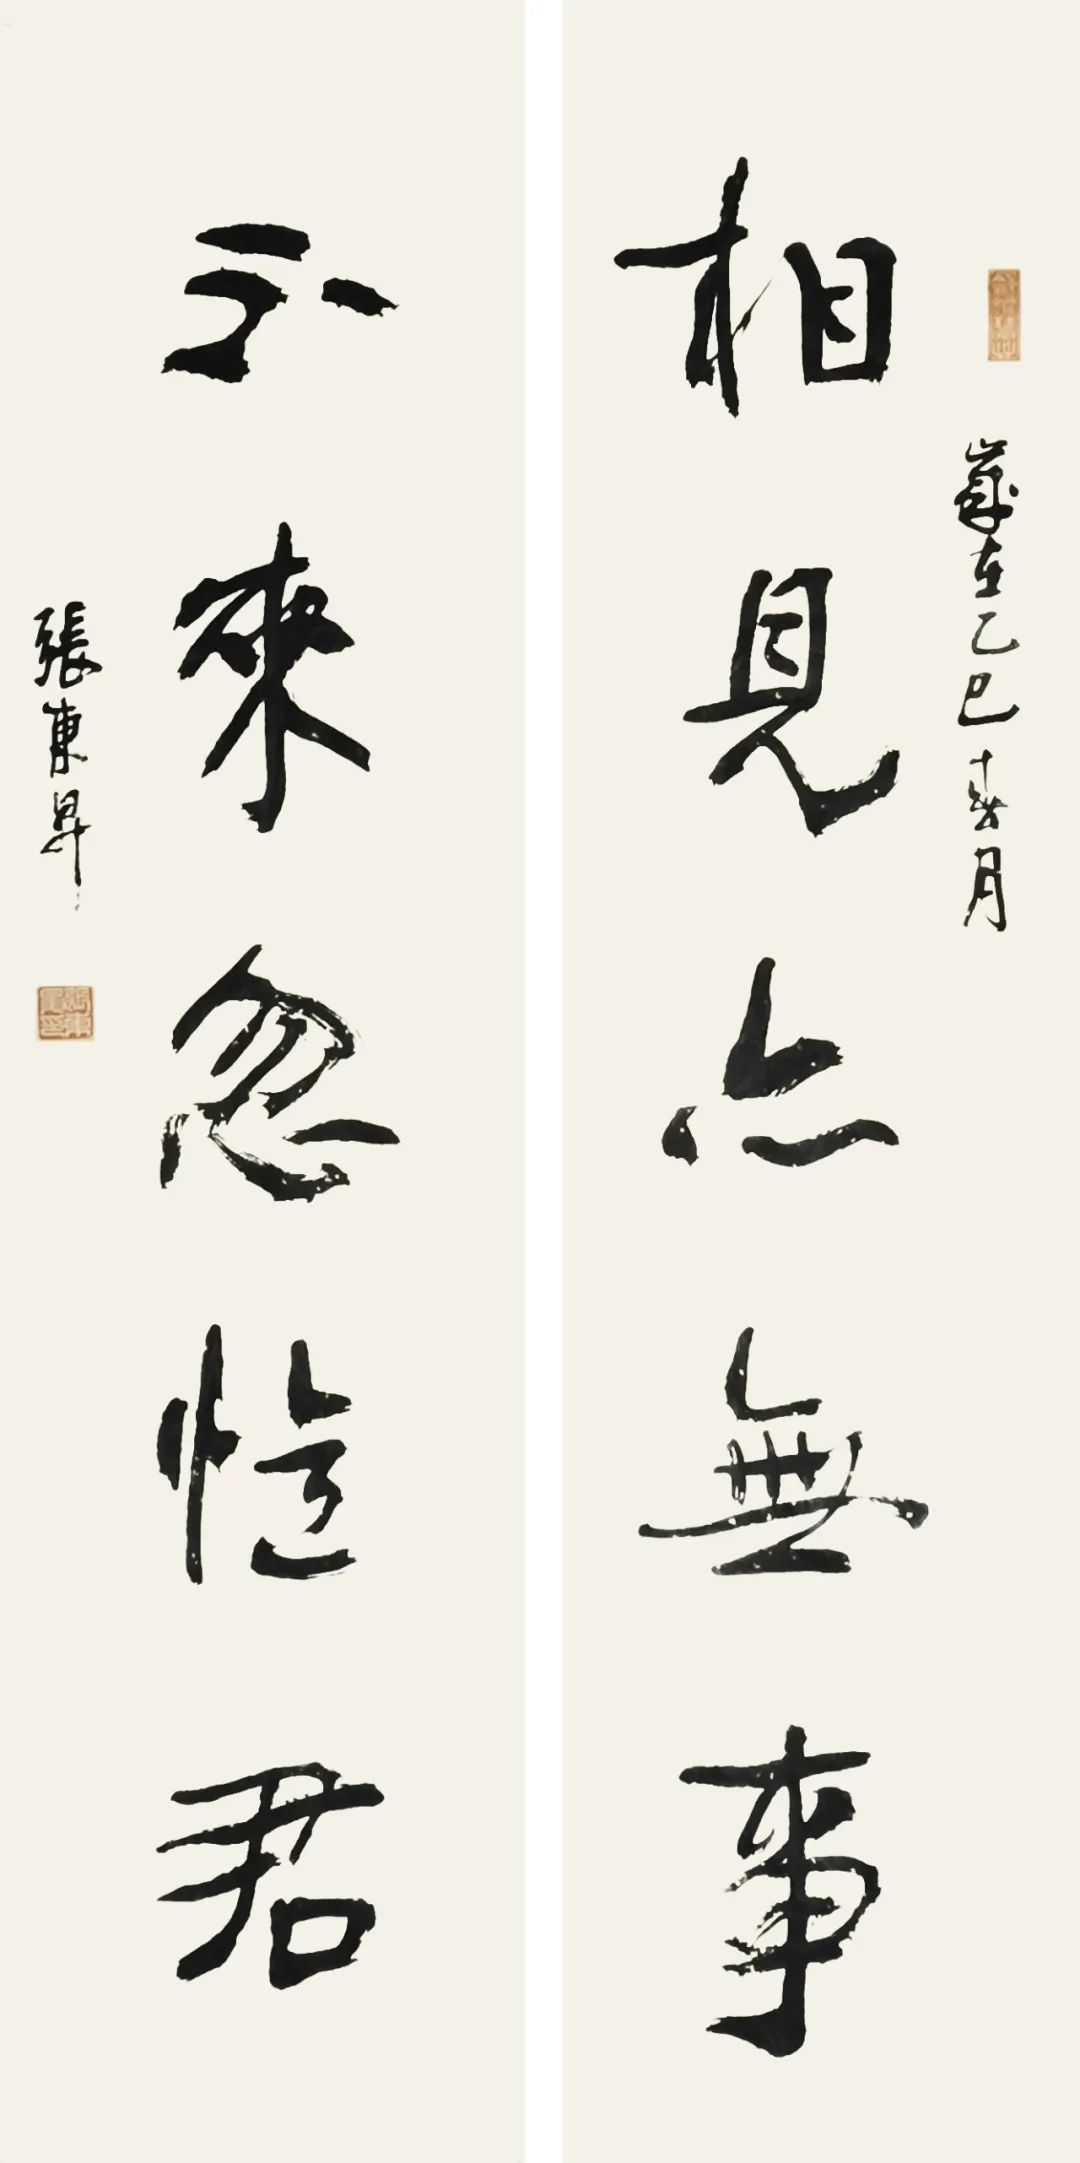 歲在乙巳春月
相見亦無事
不來忽憶君
張東昇